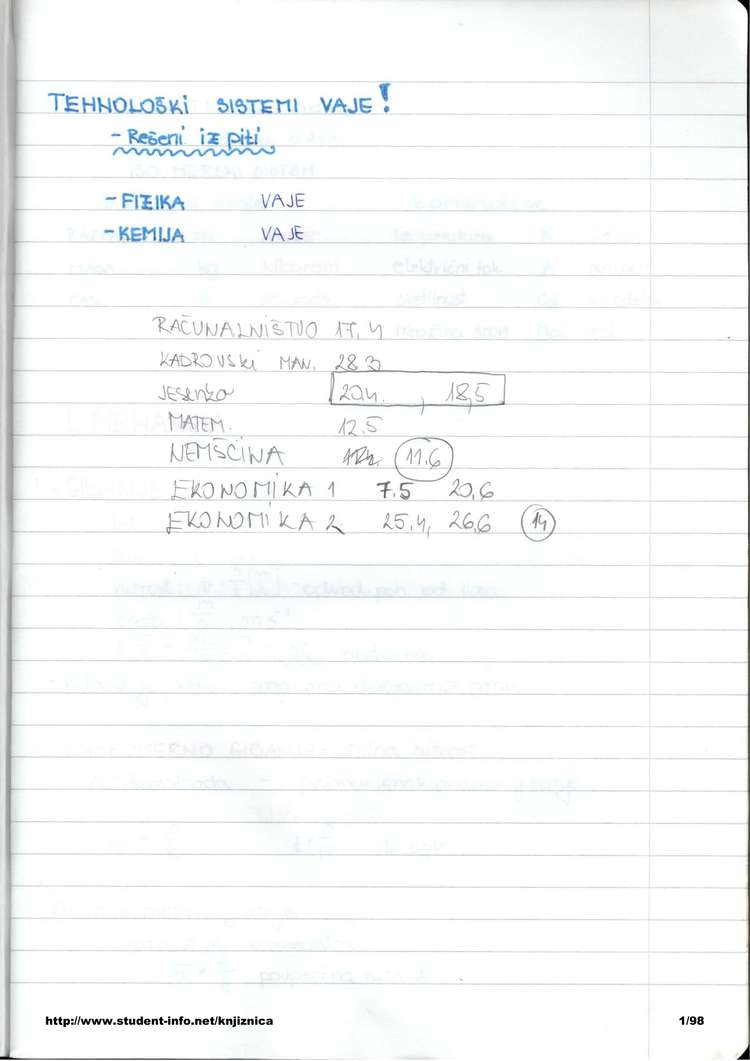 TEHNOLOŠKI SISTEMI VAJE!
- Rešeni izpiti
- FIZIKA VAJE
- KEMIJA VAJE
RAČUNALNIŠTVO 17.4
KADROVSKI MAN. 28.3
JESENKO 20.4. , 18,5
MATEM. 12.5
NEMŠČINA 11.6
EKONOMIKA 1 7.5 20,6
EKONOMIKA 2. 25.4, 26,6 14
http://www.student-info.net/knjiznica 1/98